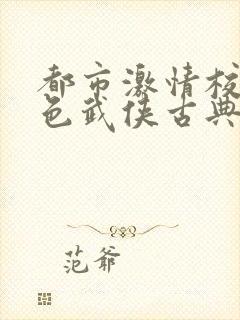 都市激情校
色武侠古典
范爷